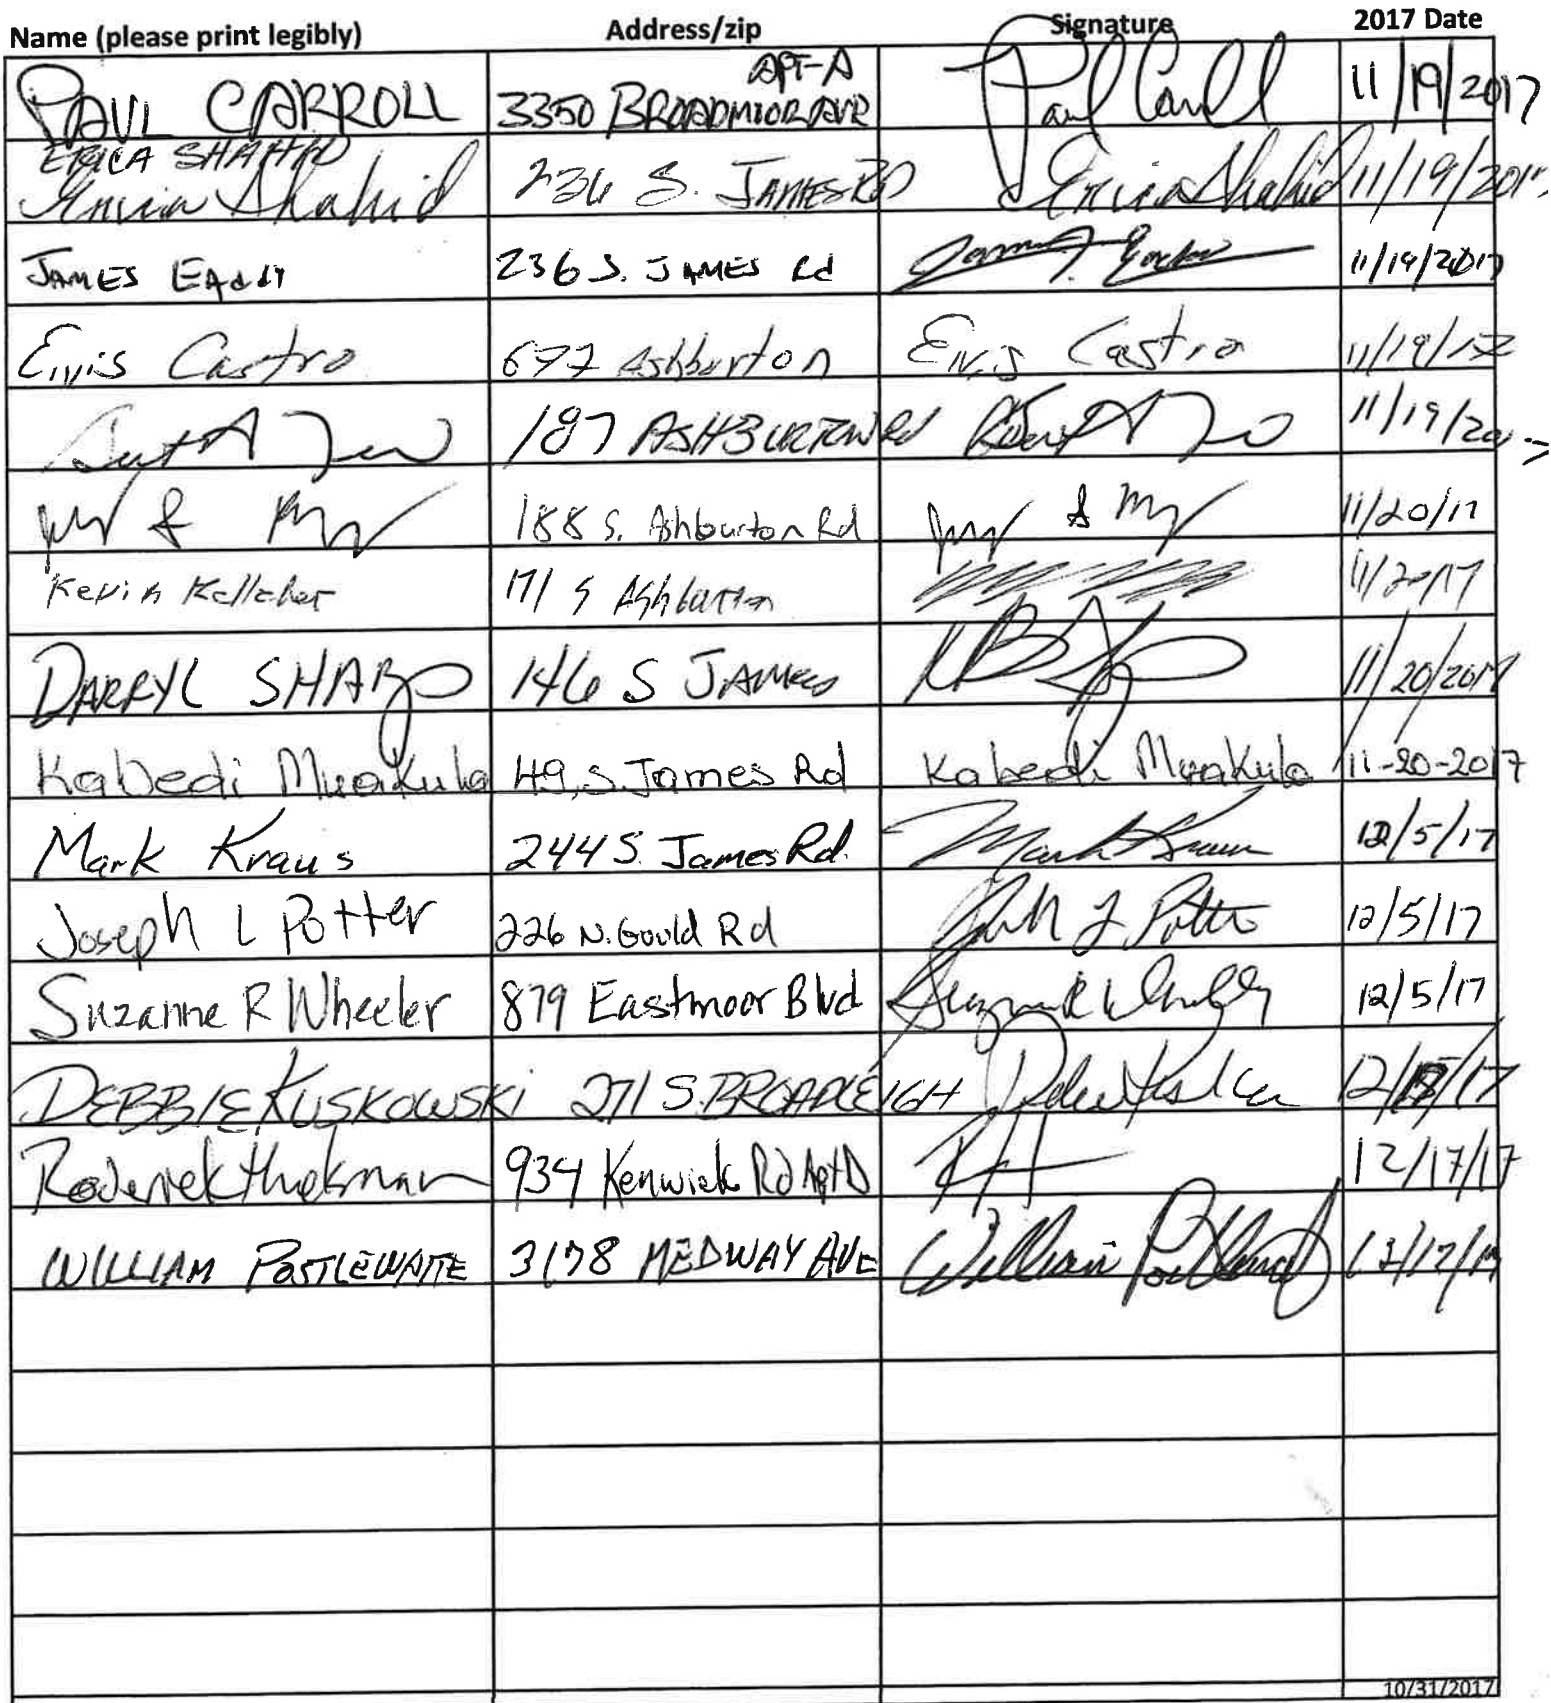 Name (please print legibly) Address/zip Signature 2017 Date
PAUL CARROLL 3350 BROADMOOR AVE APT-A Paul Carroll 11/19/2017
ERICA SHAHID
Erica Shahid 236 S. JAMES RD Erica Shahid 11/19/2017
JAMES EAddy 236 S. JAMES Rd 11/19/2017
Elvis Castro 677 Ashburton Elvis Castro 11/19/17
187 ASHBURTON Rd 11/19/2017
188 S. Ashburton Rd 11/20/17
Kevin Kelleher 171 S Ashburton 11/20/17
DARRYL SHARP 146 S JAMES 11/20/2017
Kabedi Mwakula 49, S. James Rd Kabedi Mwakula 11-20-2017
Mark Kraus 244 S. James Rd. Mark Kraus 12/5/17
Joseph L Potter 226 N. Gould Rd Potter 12/5/17
Suzanne R Wheeler 879 Eastmoor Blvd Suzanne R Wheeler 12/5/17
DEBBIE KUSKOWSKI 271 S. BROADLEIGH 17
Roderick 934 Kenwick Rd Apt D 12/17/17
WILLIAM POSTLEWAITE 3178 MEDWAY AVE William Postlewaite 12/17/17
10/31/2017